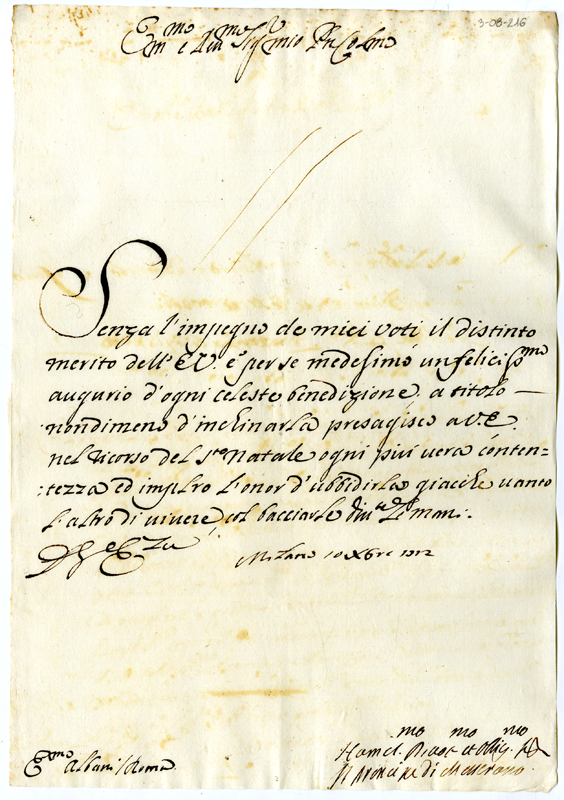 3-08-216
Em.mo e Rev.mo Sig.r mio P.n Col.mo
Senza l'impegno de miei voti il distinto
merito dell'E.V. è per se medesimo un feliciss.mo
augurio d'ogni celeste benedizione: a titolo
nondimeno d'inchinarla presagisco a V.E.
nel ricorso del S.to Natale ogni più vera conten=
:tezza ed imploro l'onor d'ubbidirla giache vanto
l'altro di vivere, col bacciarle
Milano 10 Xbre 1712
Em.mo Albani / Roma
Humil.mo Divot.mo et Oblig.mo
Il Prencipe di Masserano